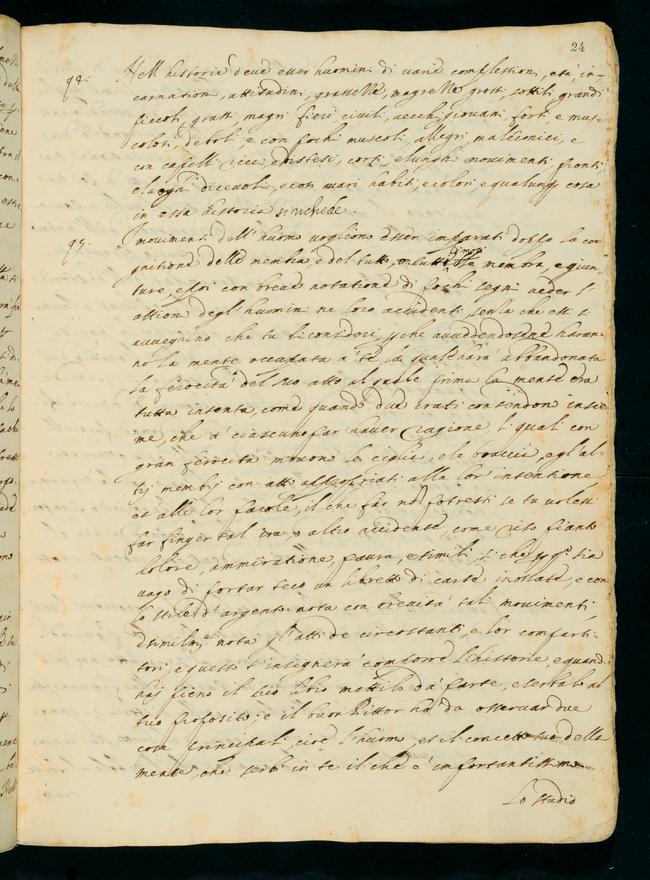 24
94. Nell historia deue esser huomini di uarie complessioni, età, in-
carnationi, attitudini, grassezze, magrezze grossi, sottili grandi
piccoli, grassi, magri fieri ciuili, uecchi giouani, forti e mus-
colosi, deboli e con pochi muscoli, allegri, malèconici, e
con capelli ricci e distesi, corti, e lunghi mouimenti pronti,
e uari habiti, e colori, e qualunq cosa
in essa historia si richiede.
95. mouimenti dell' huomo uogliono esser imparati doppo la co-
gnitione delle membra, e del tutto, in tutti moti delle membra, e giun-
ture, e poi con breue notatione di pochi segni ueder l'
attion degl' huomini ne loro accidenti senza che essi si
auueghino che tu li consideri, che auuedendosene haran-
no la mente occupata à te la quale harà abbandonata
la ferocità del suo atto il quale prima la mente era
tutta intenta, come quando due irati contendono insie-
me, che à ciascuno par hauer ragione, li quali con
gran ferocità muouono le ciglie, e le braccia, e gl' al-
tri membri con atti appropriati alla lor' intentione
et alle lor parole, il che far nõ potresti se tu uolessi
far finger tal ira ò altro accidente, come riso pianto
dolore, ammiratione, paura, e simili, si che sia
uago di portar teco un libretto di carte inossate, e con
lo stile d' argento nota con breuità tali mouimenti
e similmẽ nota gl' atti de circostanti, e lor comparti-
tori, e questo t' insegnerà comporre l' historie, e quando
haj pieno il tuo libro mettilo da parte, e serbalo al
tuo proposito; e il buon Pittor ha da osseruar due
cose principali, cioè l' huomo, et il concetto suo della
mente, che serbi in te il che è importantissimo.
Lo studio